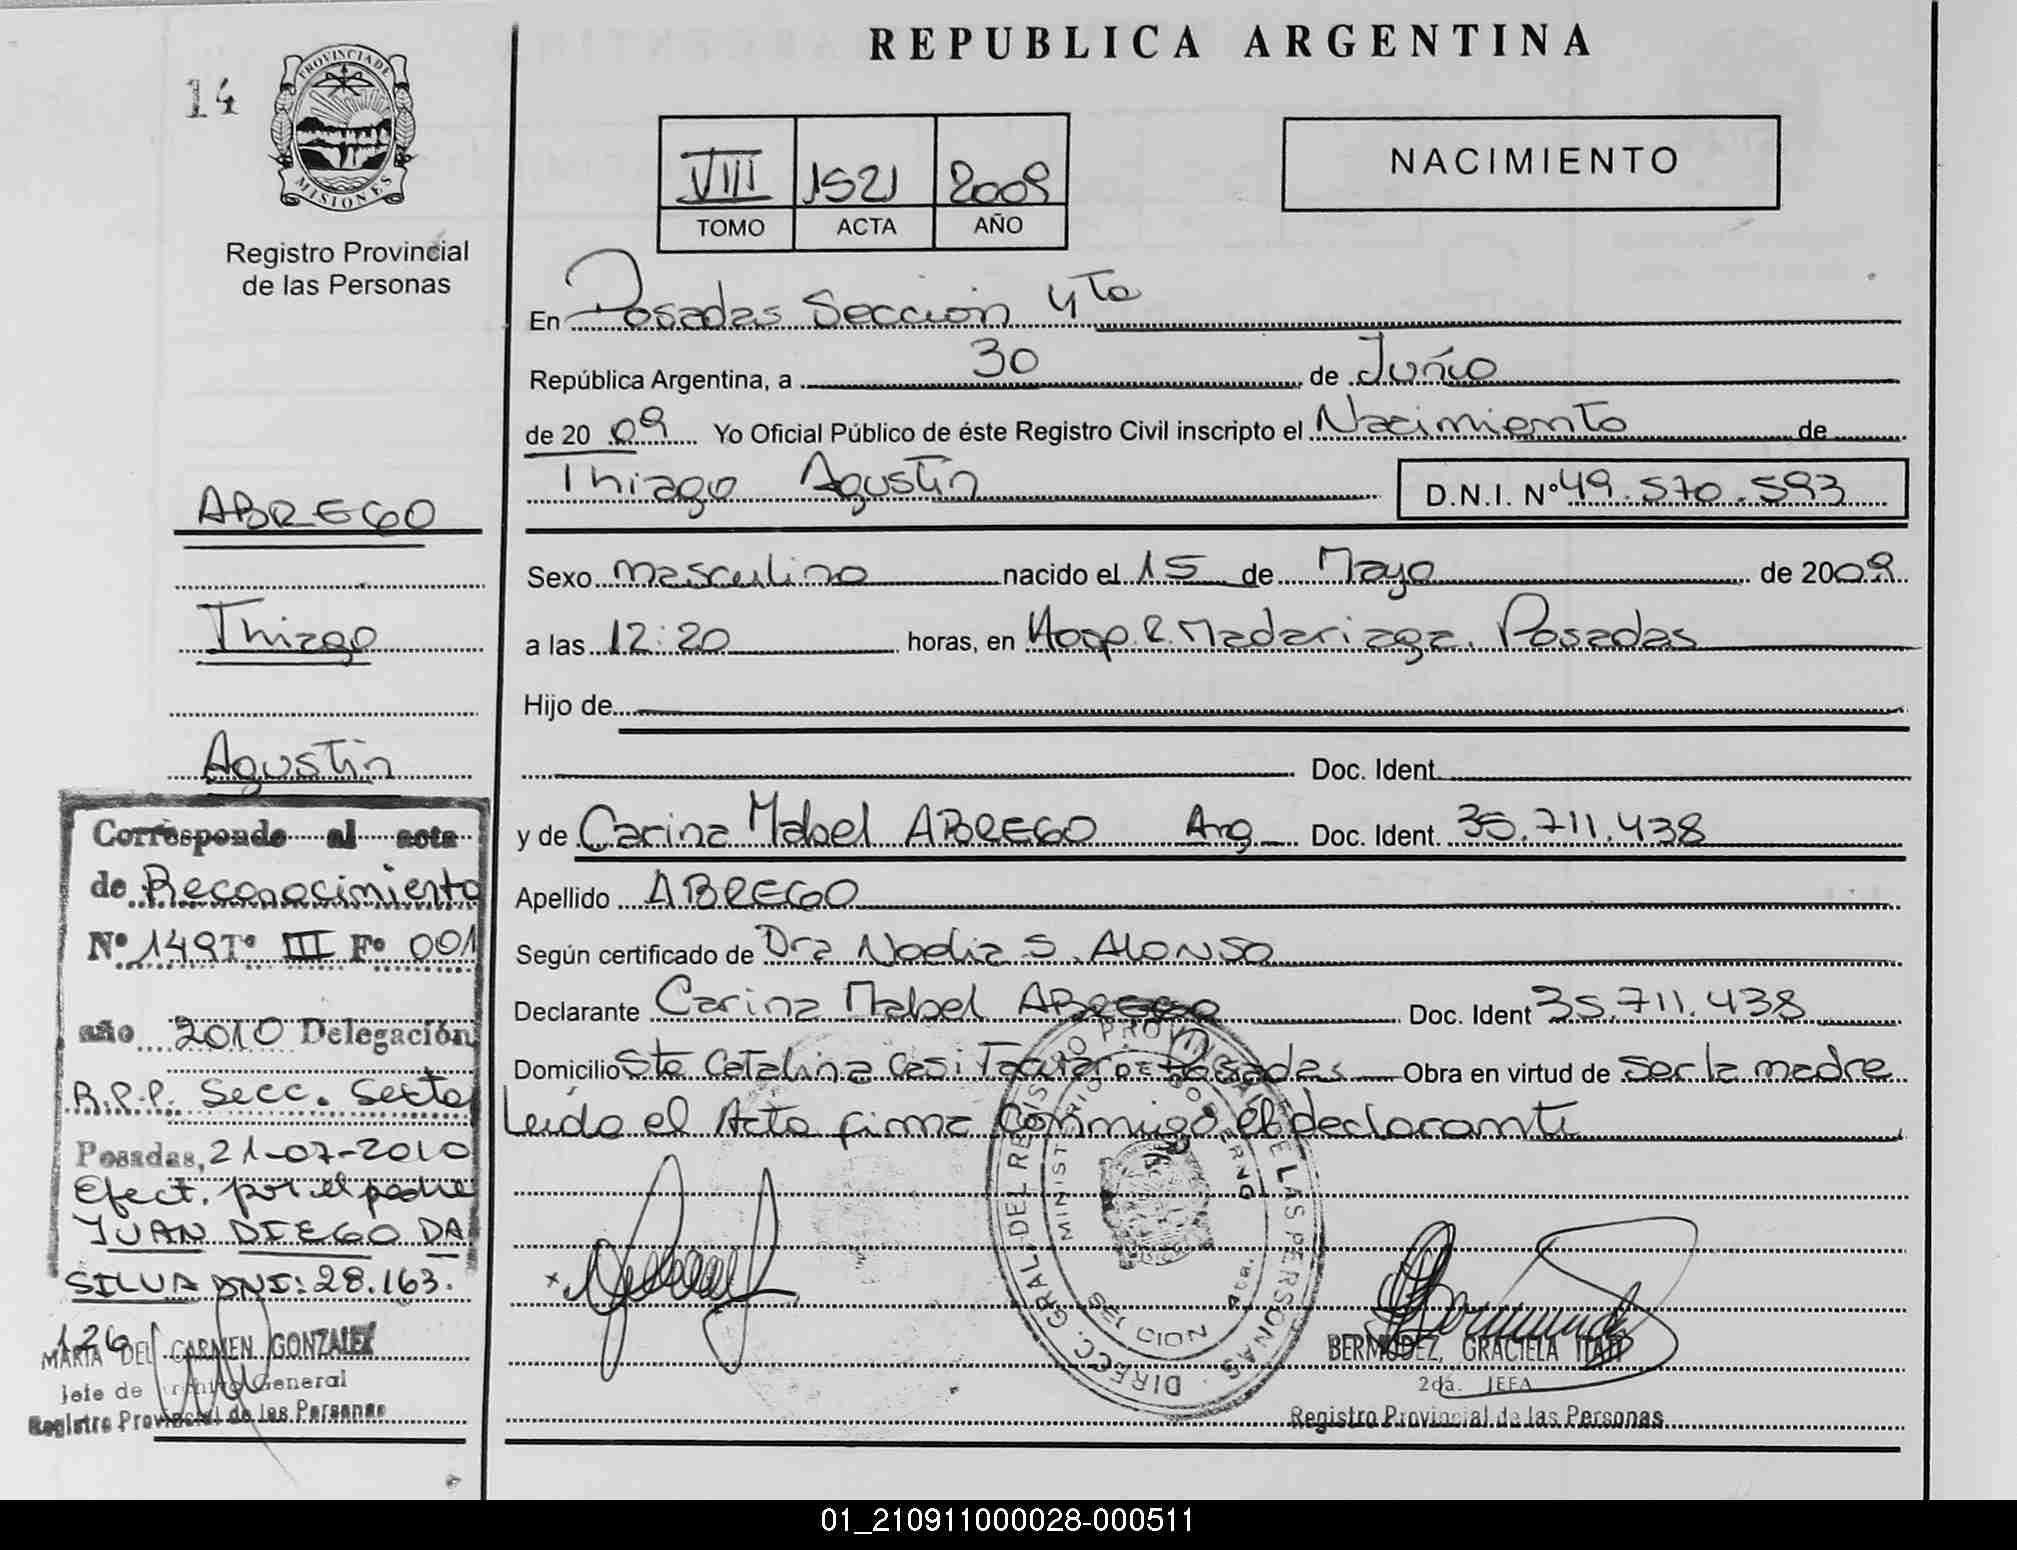 REPUBLICA ARGENTINA
14
PROVINCIA DE MISIONES
Registro Provincial
de las Personas
VIII 1521 2009
TOMO ACTA AÑO
NACIMIENTO
En Posadas Sección 4ta
República Argentina, a 30 de Junio
de 20 09 Yo Oficial Público de éste Registro Civil inscripto el Nacimiento de
Thiago Agustin D.N.I. Nº 49.570.593
Sexo masculino nacido el 15 de Mayo de 2009
a las 12:20 horas, en Hosp. R. Madariaga. Posadas
Hijo de
Doc. Ident.
y de Carina Mabel ABREGO Arg. Doc. Ident. 35.711.438
Apellido ABREGO
Según certificado de Dra Noelia S. ALONSO
Declarante Carina Mabel ABREGO Doc. Ident 35.711.438
Domicilio Sta Catalina Casi Posadas Obra en virtud de ser la madre
Leido el Acta firma conmigo el declarante
ABREGO
Thiago
Agustin
Corresponde al acta
de Reconocimiento
Nº 149 Tº III Fº 001
año 2010 Delegación
R.P.P. Secc. Sexta
Posadas, 21-07-2010
Efect. por el padre
JUAN DIEGO DA
SILVA DNI: 28.163.
126
MARIA DEL CARMEN GONZALEZ
Jefe de Archivo General
Registro Provincial de las Personas
DIRECC. GRAL. DEL REGISTRO PROVINCIAL DE LAS PERSONAS
MINISTERIO DE GOBIERNO
SECCION 4ta.
BERMUDEZ, GRACIELA ITATI
2da. JEFA
Registro Provincial de las Personas
01_210911000028-000511